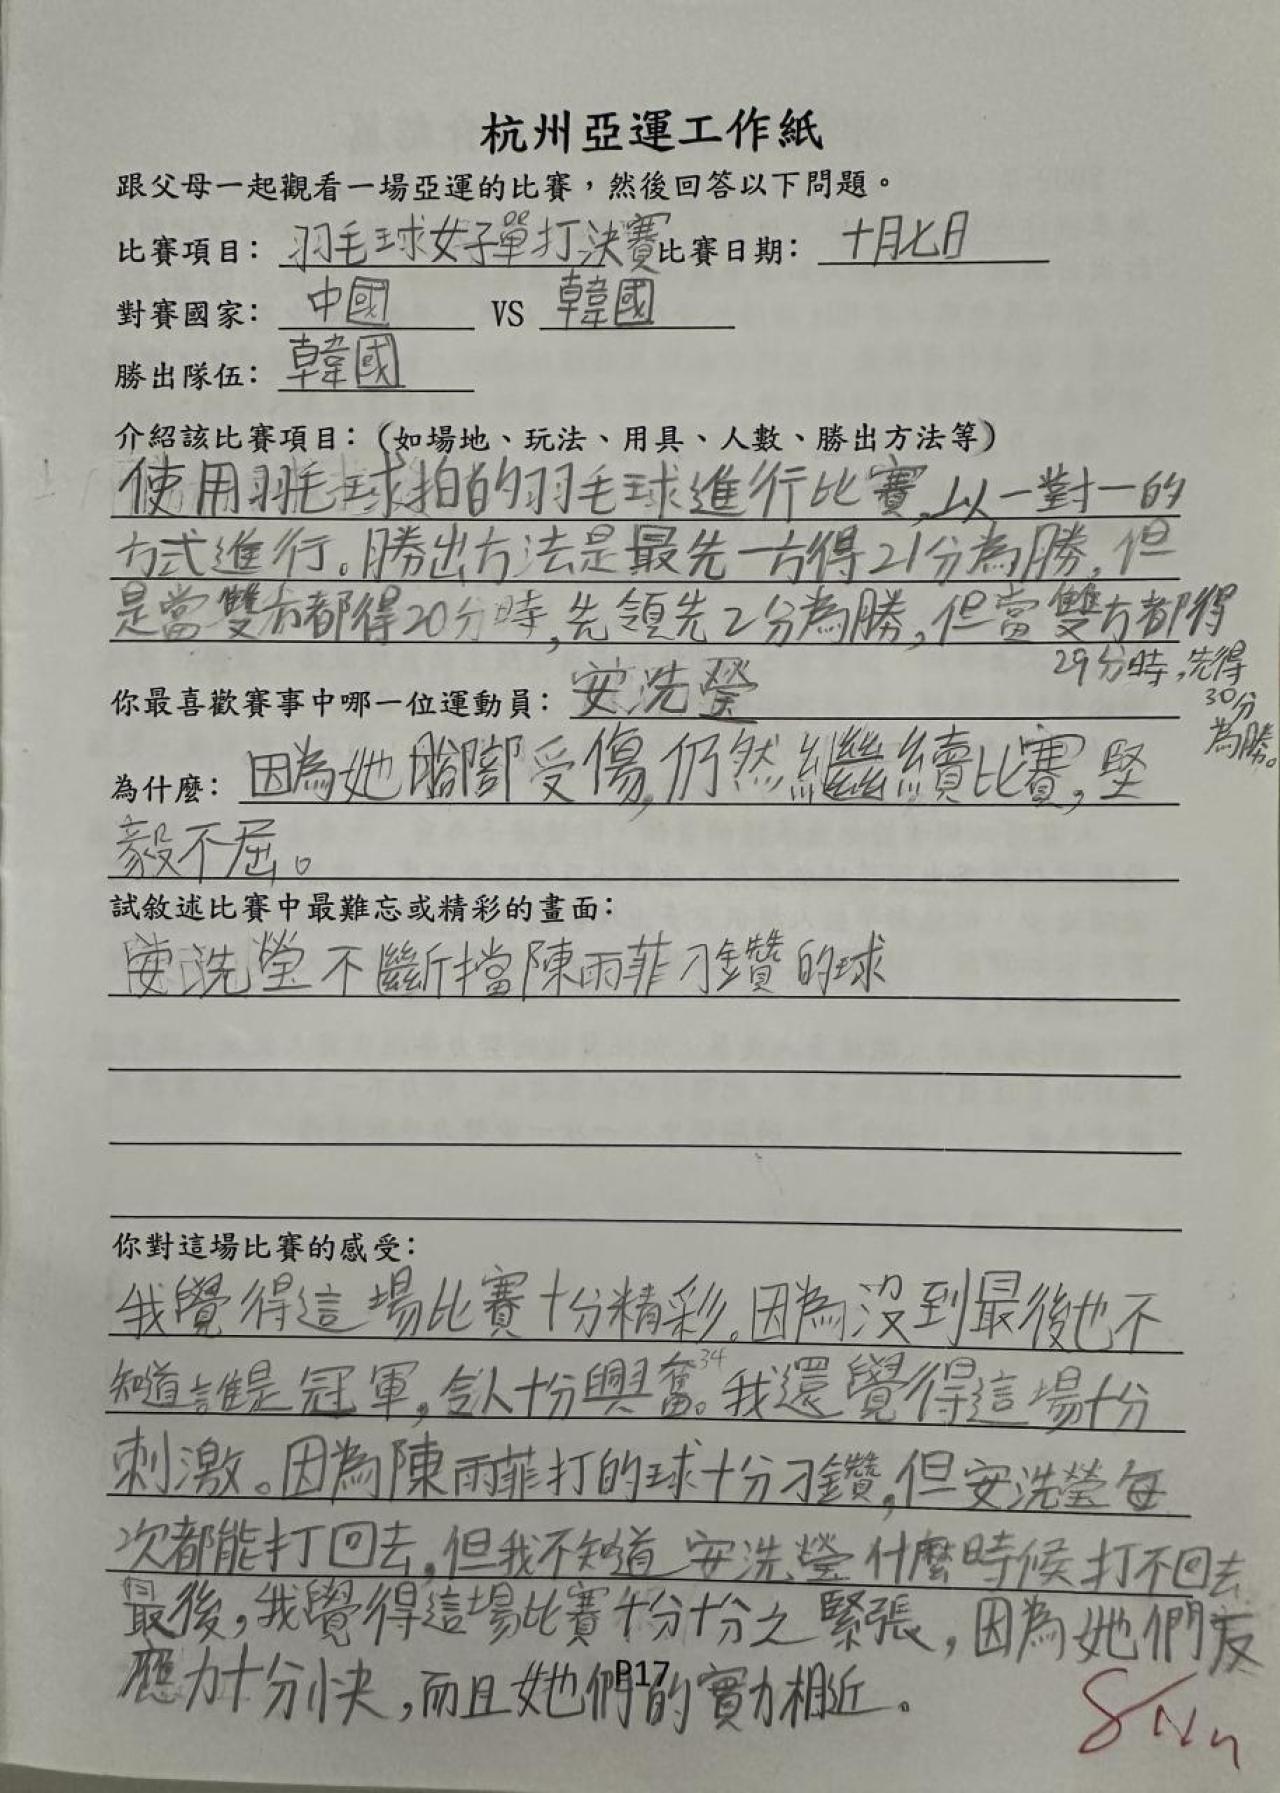 杭州亞運工作紙
跟父母一起觀看一場亞運的比賽，然後回答以下問題。
比賽項目：羽毛球女子單打決賽 比賽日期：十月七日
對賽國家：中國 VS 韓國
勝出隊伍：韓國
介紹該比賽項目：（如場地、玩法、用具、人數、勝出方法等）
使用羽毛球拍的羽毛球進行比賽，以一對一的
方式進行。勝出方法是最先一方得21分為勝，但
是當雙方都得20分時，先領先2分為勝，但當雙方都得
29分時，先得
30分
為勝。
你最喜歡賽事中哪一位運動員：安洗瑩
為什麼：因為她腳部受傷，仍然繼續比賽，堅
毅不屈。
試敘述比賽中最難忘或精彩的畫面：
安洗瑩不斷擋陳雨菲刁鑽的球
你對這場比賽的感受：
我覺得這場比賽十分精彩。因為沒到最後也不
知道誰是冠軍，令人十分興奮。34我還覺得這場十分
刺激。因為陳雨菲打的球十分刁鑽，但安洗瑩每
次都能打回去，但我不知道安洗瑩什麼時候打不回去
最後，我覺得這場比賽十分十分之緊張，因為她們反
應力十分快，而且她們的實力相近。
P17